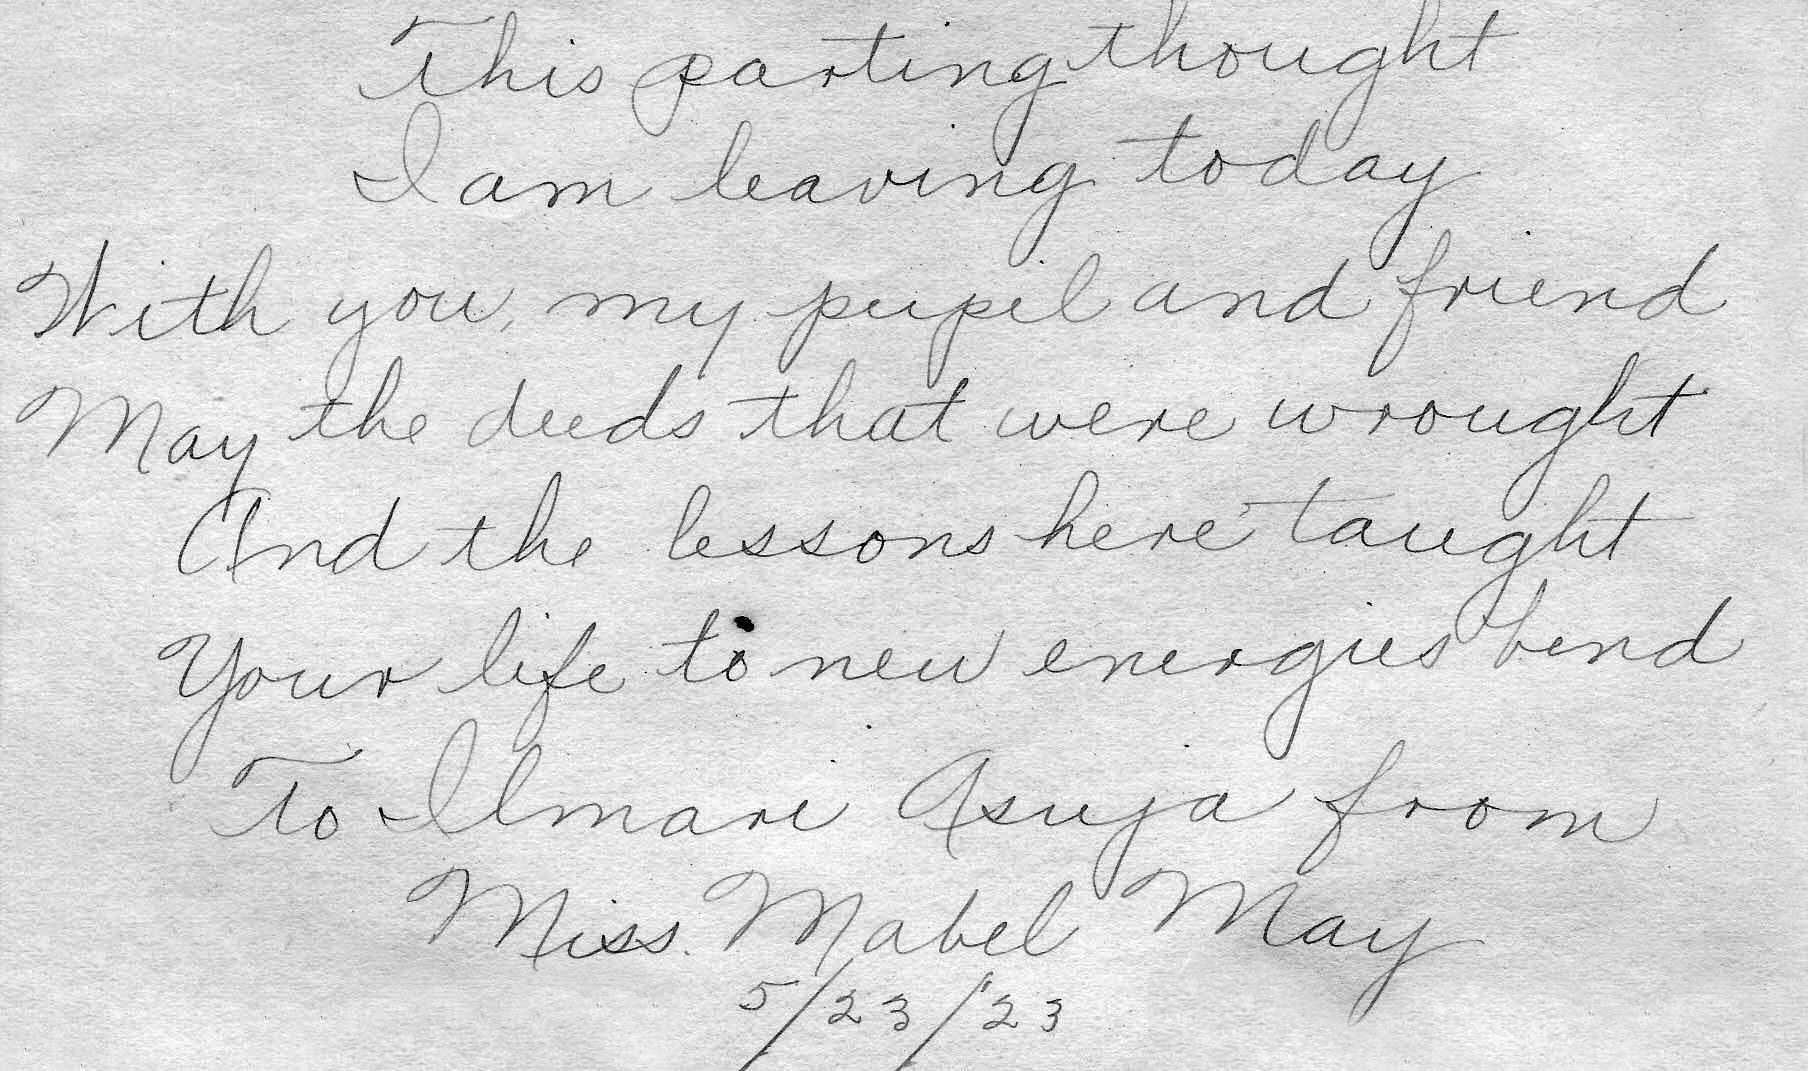 This parting thought
I am leaving today
With you, my pupil and friend
May the deeds that were wrought
And the lessons here taught
Your life to new energies bend
To Ilmari Asuja from
Miss. Mabel May
5/23/'23